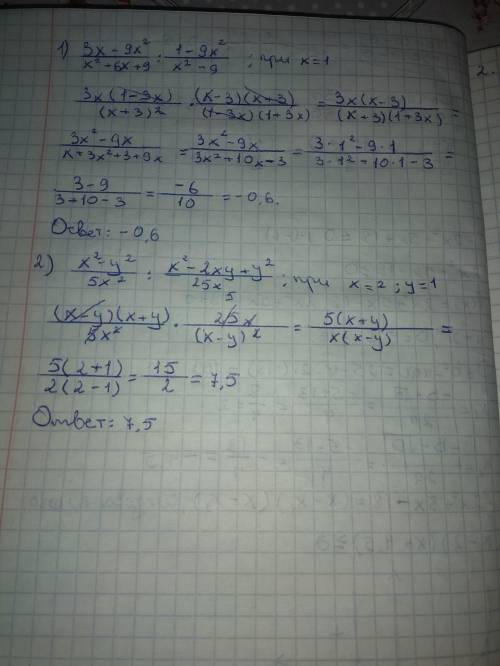 1) (3x - 9x²)/(x² + 6x + 9) : (1 - 9x²)/(x² - 9) ; при x = 1
(3x(1 - 3x))/((x + 3)²) · ((x - 3)(x + 3))/((1 - 3x)(1 + 3x)) = (3x(x - 3))/((x + 3)(1 + 3x)) =
(3x² - 9x)/(x + 3x² + 3 + 9x) = (3x² - 9x)/(3x² + 10x - 3) = (3 · 1² - 9 · 1)/(3 · 1² + 10 · 1 - 3) =
(3 - 9)/(3 + 10 - 3) = (-6)/10 = -0,6.
Ответ: -0,6
2) (x² - y²)/(5x²) : (x² - 2xy + y²)/(25x) ; при x = 2 ; y = 1
((x - y)(x + y))/(5x²) · (25x)/((x - y)²) = (5(x + y))/(x(x - y)) =
5
(5(2 + 1))/(2(2 - 1)) = 15/2 = 7,5
Ответ: 7,5
2.